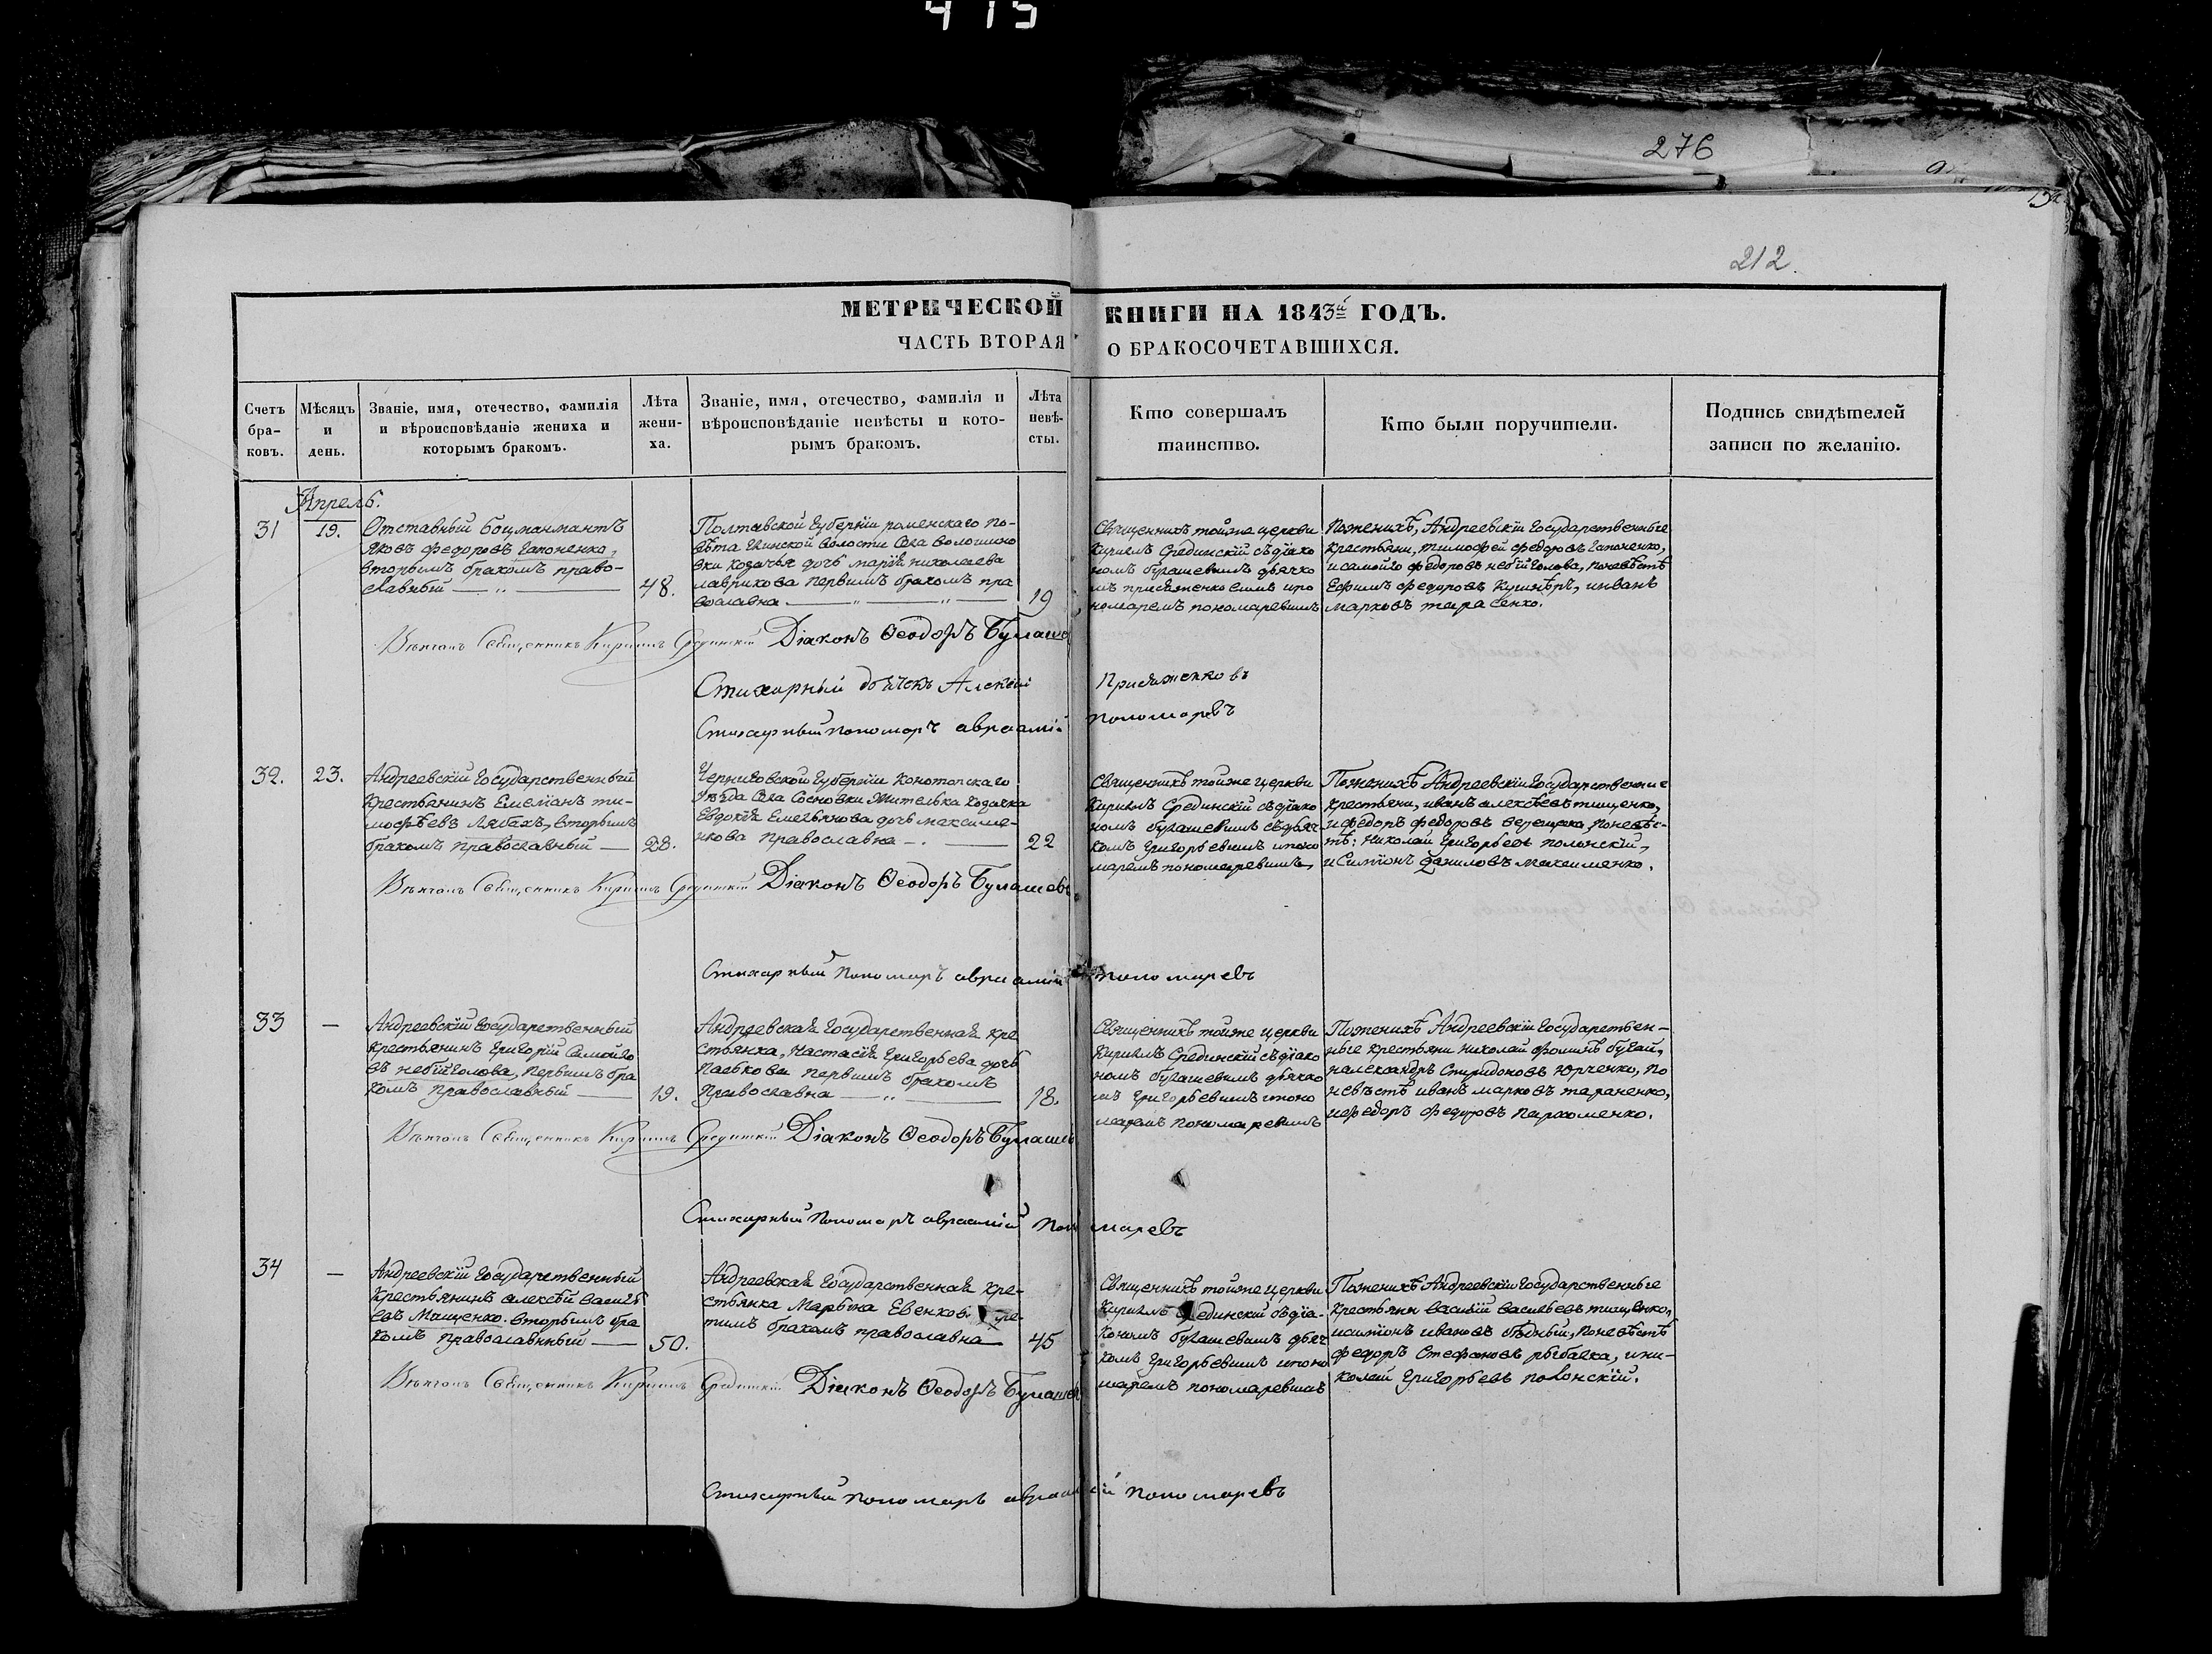 415
276
212.
МЕТРИЧЕСКОЙ КНИГИ НА 1843й ГОДЪ.
ЧАСТЬ ВТОРАЯ О БРАКОСОЧЕТАВШИХСЯ.
Счетъ
бра-
ковъ.
Мѣсяцъ
и
день.
Званіе, имя, отечество, фамилія
и вѣроисповѣданіе жениха и
которымъ бракомъ.
Лѣта
жени-
ха.
Званіе, имя, отечество, фамилія и
вѣроисповѣданіе невѣсты и кото-
рымъ бракомъ.
Лѣта
невѣ-
сты.
Кто совершалъ
таинство.
Кто были поручители.
Подпись свидѣтелей
записи по желанію.
Апрель.
31
19.
Отставный боцманматъ
Яковъ федоровъ гапоненко,
вторымъ бракомъ право-
славный
48.
Полтавской губерніи роменскаго по-
вѣта Глинской волости Села волошино
вки козачья дочь марія николаева
лаврикова первымъ бракомъ пра
вославна
19
Священникъ тойже церкви
Кирилъ Срединскій съдіако
номъ булашевымъ дьячко
мъ присяженковымъ ипо
номаремъ пономаревымъ
Поженихѣ, Андреевскіи государственные
крестьяни, тимофей федоровъ гапоненко,
исамойло федоровъ небійголова, поневѣстѣ
Ефимъ федоровъ Кушнѣръ, ииванъ
марковъ тарасенко.
Вѣнчалъ Священникъ Кирилъ Срединскій Діаконъ Ѳеодоръ Булашев
Стихарный дьячекъ Алексій Присяженковъ
Стихарный пономарь авраамій пономаревъ
32.
23.
Андреевскій государственный
крестьянинъ Емеліанъ ти-
мофѣевъ Лябахъ, вторымъ
бракомъ православный
28.
Черниговской губерніи Конотопскаго
уѣзда Села Сосновки Жителька козачка
Евдокія Емельянова дочь максиме-
нкова православна
22
Священникъ тойже церкви
Кирилъ Срединскій съдіако
номъ булашевымъ съдьяч-
комъ григорьевымъ ипоно
маремъ пономаревымъ,
Поженихѣ Андреевскіи государственные
крестьяни, иванъ алексѣевъ тищенко,
ифедоръ федоровъ верещака, поневѣс-
тѣ: николай григорьевъ полонскій,
и Симіонъ даниловъ максименко.
Вѣнчалъ Священникъ Кирилъ Срединскій Діаконъ Ѳеодоръ Булашевъ
Стихарный пономарь авраамій пономаревъ
33
—
Андреевскій государственный
крестьянинъ григорій Самойло
въ небійголова, первымъ бра
комъ православный
19.
Андреевская государственная кре
стьянка, настасія григорьева дочь
первымъ бракомъ
православна
18.
Священникъ тойже церкви
Кирилъ Срединскій съдіако
номъ булашевымъ дьячко
мъ григорьевымъ ипоно
маремъ пономаревымъ
Поженихѣ Андреевскіи государствен-
ные крестьяни николай фоминъ бугай,
иалександръ Спиридоновъ юрченко, по
невѣстѣ иванъ марковъ тараненко,
ифедоръ федоровъ пархоменко.
Вѣнчалъ Священникъ Кирилъ Срединскій Діаконъ Ѳеодоръ Булашев
Стихарный пономарь авраамій пономаревъ
34
—
Андреевскій государственный
крестьянинъ алексѣй василь
евъ Мащенко. вторымъ бра
комъ православнный
50.
Андреевская государственная кре-
стьянка Марьяна Евенкова тре-
тимъ бракомъ православна
45
Священникъ тойже церкви
Кирилъ Срединскій съдіа-
кономъ булашевымъ дьяч
комъ григорьевымъ ипоно
маремъ пономаревымъ
Поженихѣ Андреевскіи государственные
крестьяни василій васильевъ тищенко,
исиміонъ ивановъ бѣдный, поневѣстѣ
федоръ Стефановъ рыбалка, ини-
колай григорьевъ полонскій.
Вѣнчалъ Священникъ Кирилъ Срединскій Діаконъ Ѳеодоръ Булашев
Стихарный пономарь авраамій пономаревъ